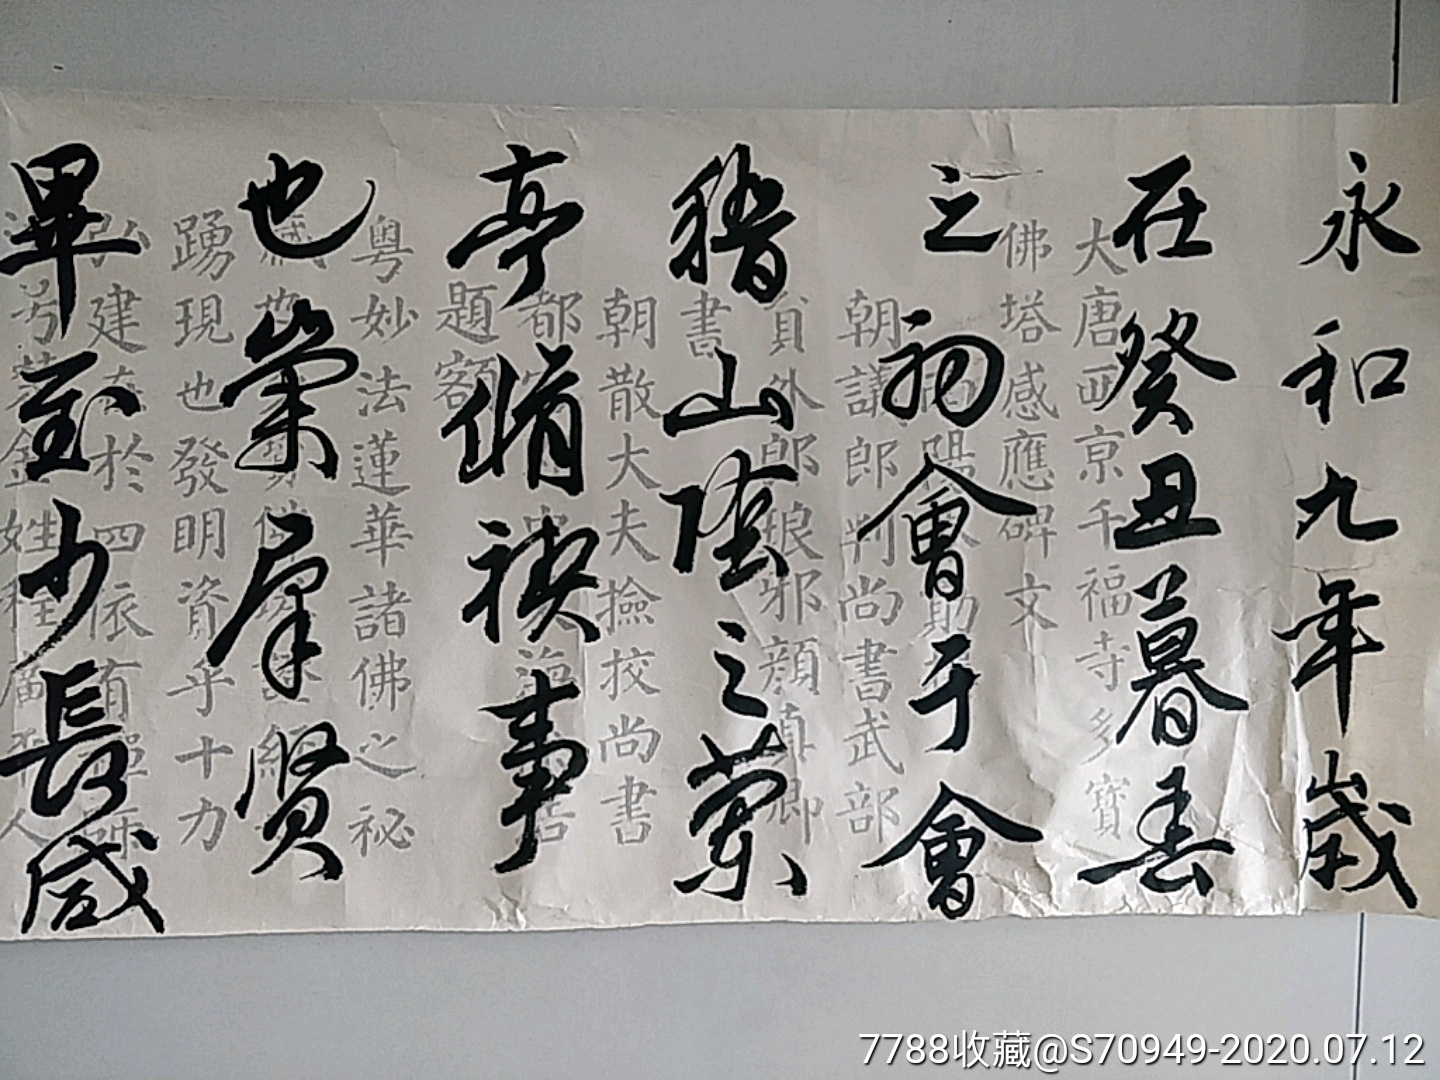 永和九年歲
在癸丑暮春
之初會于會
稽山陰之蘭
亭脩禊事
也羣賢
畢至少長咸
大唐西京千福寺多寶
佛塔感應碑文
南陽勛
朝議郎判尚書武部
員外郎琅邪顏真卿
書
朝散大夫撿挍尚書
都
題額
粵妙法蓮華諸佛之秘
踴現也發明資乎十力
弘建在於四依有禪師
号金姓程廣平人
7788收藏@S70949-2020.07.12